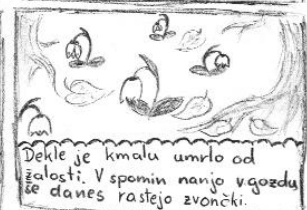 Dekle je kmalu umrlo od
žalosti. V spomin nanjo v gozdu
še danes rastejo zvončki.